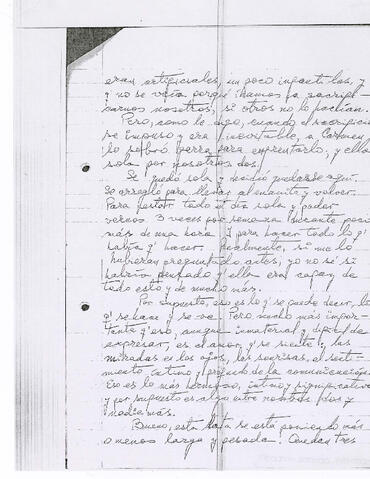 eran artificiales, un poco infantiles, y
y no se veía porqué íbamos a sacrifi-
carnos nosotros, si otros no lo hacían.
Pero, como le digo, cuando el sacrificio
se impuso y era inevitable, a Carmen
le sobró garra para enfrentarlo, y ella
sola por nosotros dos.
Se quedó sola y decidió quedarse aquí.
Se arregló para llevar al nenito y volver.
Para estar todo el día sola y poder
vernos 3 veces por semana durante poco
más de una hora. Y para hacer todo lo q'
había q' hacer. Realmente, si me lo
hubieran preguntado antes, yo no sé si
habría pensado q' ella era capaz de
todo esto y de mucho más.
Por supuesto, eso es lo q' se puede decir, lo
q' se hace y se ve. Pero mucho más impor-
tante q' eso, aunque inmaterial y difícil de
expresar, es el amor q' se siente, las
miradas es los ojos, las sonrisas, el sent-
imiento íntimo y profundo de la comunicación.
Eso es lo más hermoso, íntimo y significativo
y por supuesto es algo entre nosotros dos y
nadie más.
Bueno, esta carta se está poniendo más
o menos larga y pesada. Quedan tres